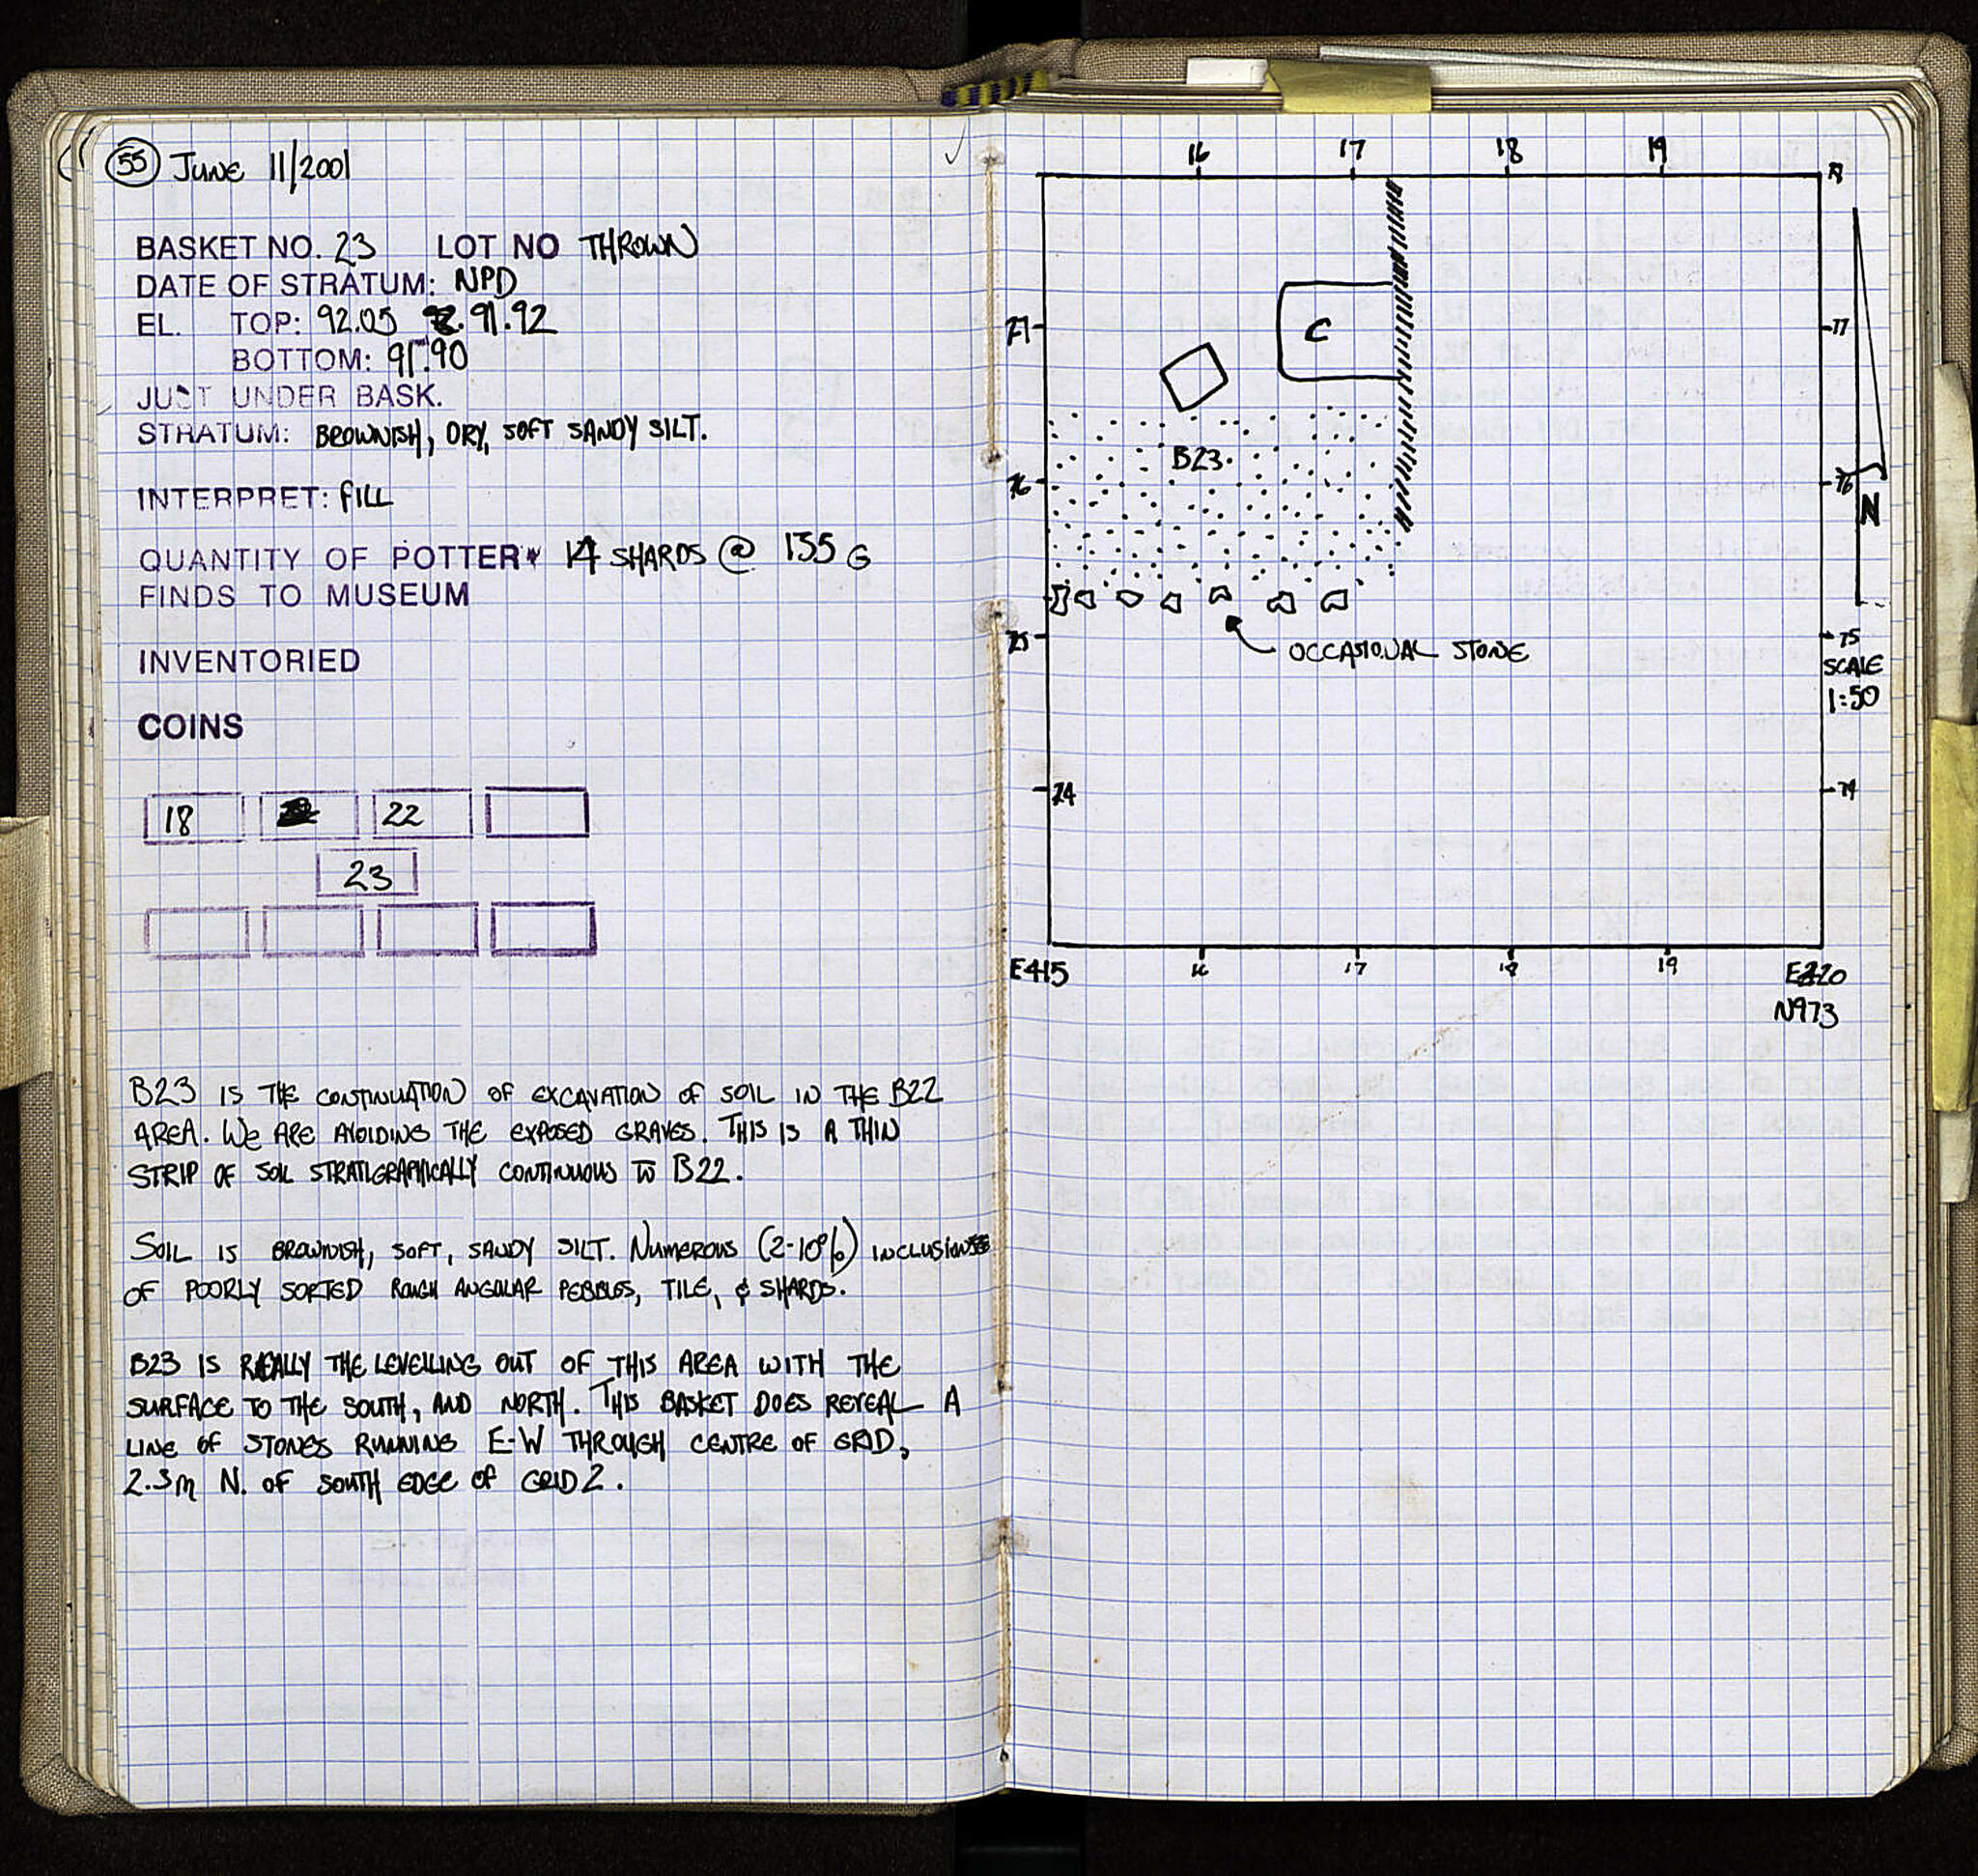 55 JUNE 11/2001
BASKET NO. 23 LOT NO THROWN
DATE OF STRATUM: NPD
EL. TOP: 92.05 91.92
BOTTOM: 91.90
JUST UNDER BASK.
STRATUM: BROWNISH, DRY, SOFT SANDY SILT.
INTERPRET: FILL
QUANTITY OF POTTERY 14 SHARDS @ 135 G
FINDS TO MUSEUM
INVENTORIED
COINS
18 22
23
B23 IS THE CONTINUATION OF EXCAVATION OF SOIL IN THE B22
AREA. WE ARE AVOIDING THE EXPOSED GRAVES. THIS IS A THIN
STRIP OF SOIL STRATIGRAPHICALLY CONTINUOUS TO B22.
SOIL IS BROWNISH, SOFT, SANDY SILT. NUMEROUS (2-10%) INCLUSIONS
OF POORLY SORTED ROUGH ANGULAR PEBBLES, TILE, & SHARDS.
B23 IS REALLY THE LEVELLING OUT OF THIS AREA WITH THE
SURFACE TO THE SOUTH, AND NORTH. THIS BASKET DOES REVEAL A
LINE OF STONES RUNNING E-W THROUGH CENTRE OF GRID,
2.3m N. OF SOUTH EDGE OF GRID 2.
16 17 18 19
78
77 C 77
B23
76 76
N
OCCASIONAL STONE
75 75
SCALE
1:50
74 74
E415 16 17 18 19 E420
N973